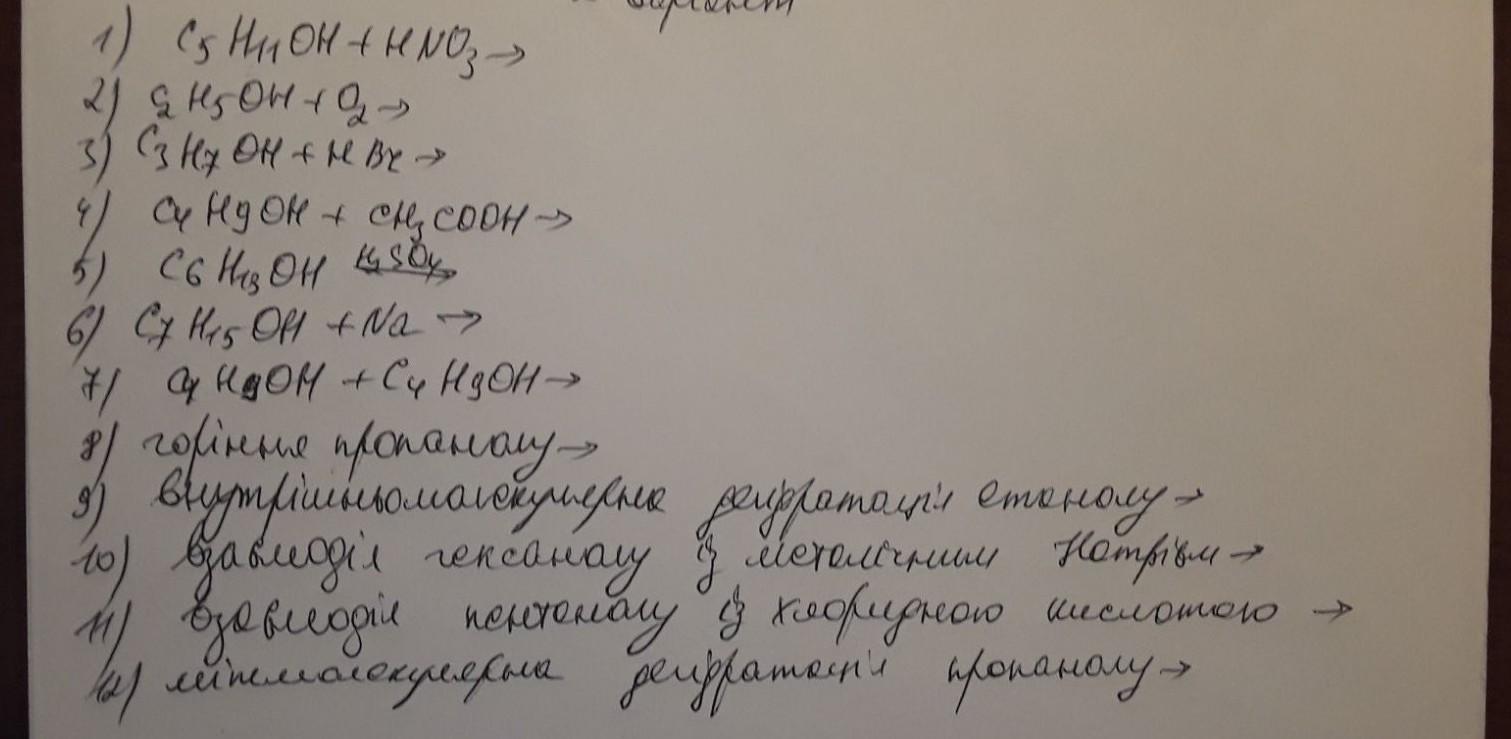 варіант
1) C5H11OH + HNO3 →
2) C2H5OH + O2 →
3) C3H7OH + HBr →
4) C4H9OH + CH3COOH →
5) C6H13OH H2SO4 →
6) C7H15OH + Na →
7) C4H9OH + C4H9OH →
8) горіння пропанолу →
9) внутрішньомолекулярна дегідратація етанолу →
10) взаємодія гексанолу із металічним Натрієм →
11) взаємодія пентанолу із хлоридною кислотою →
12) міжмолекулярна дегідратація пропанолу →